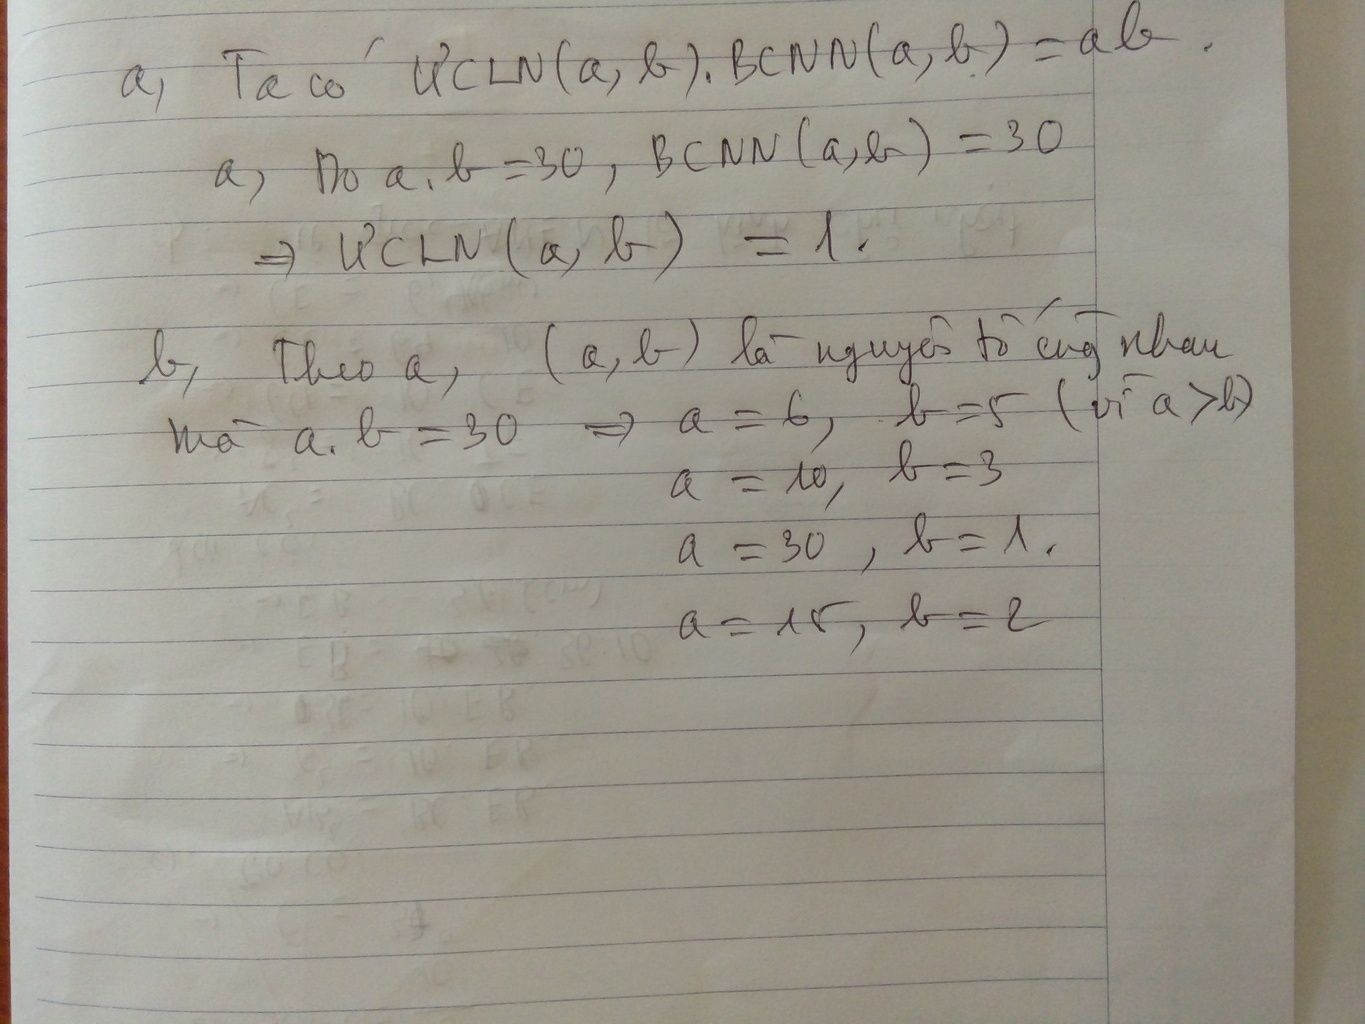 a, Ta có ƯCLN(a, b). BCNN(a, b) = ab.
a, Do a. b = 30, BCNN(a,b) = 30
⇒ ƯCLN(a, b) = 1.
b, Theo a, (a, b) là nguyên tố cùng nhau
mà a. b = 30 ⇒ a = 6, b = 5 (vì a > b)
a = 10, b = 3
a = 30, b = 1.
a = 15, b = 2